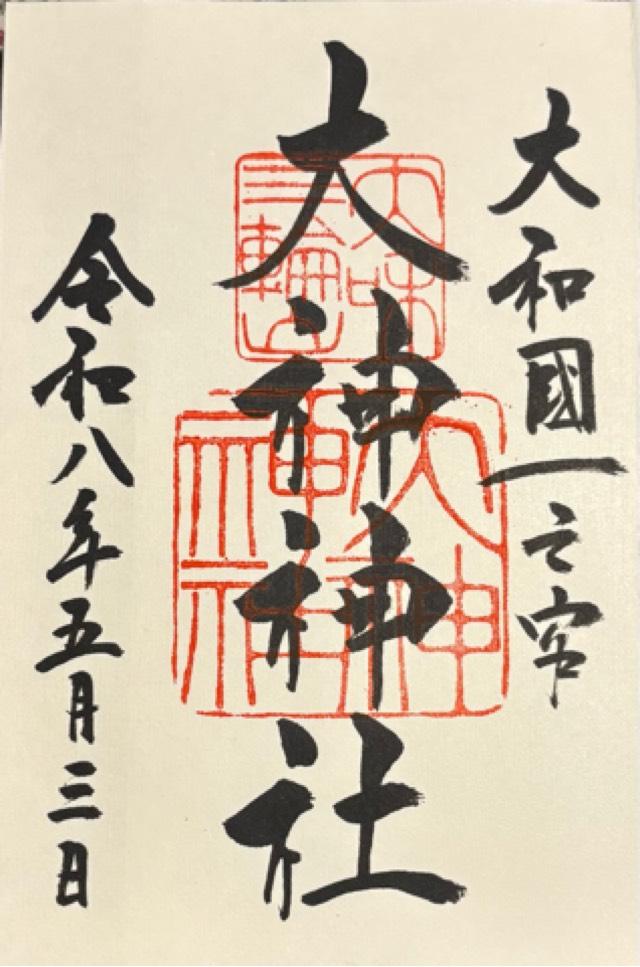 大和國一之宮
大神神社
令和八年五月三日
大神
神社